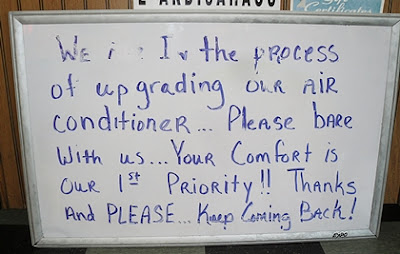 We In the process
of upgrading our AIR
conditioner... Please bare
With us... Your Comfort is
Our 1st Priority!! Thanks
And PLEASE... Keep Coming Back!
EXPO